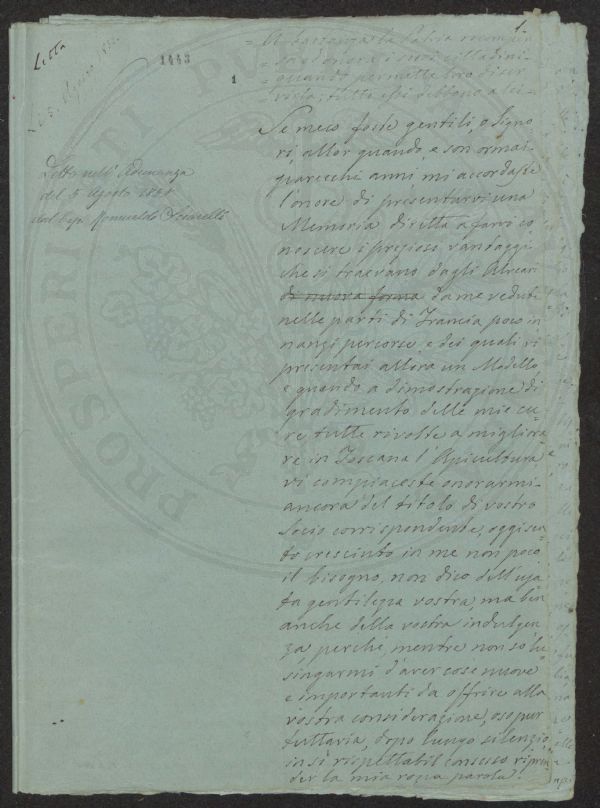 1.
Letta
1443
1
= Abbastanza la Patria ricompen
= sa ed onora i suoi cittadini
= quando permette loro di ser
= virla; tutto essi debbono a lei =
Letta nell' Adunanza
del 5 Agosto 1838
dal Sig.r Romualdo
Se meco foste gentili, o Signo
ri, allor quando, e son ormai
parecchi anni mi accordaste
l'onore di presentarvi una
Memoria diretta a farvi co
noscere i preziosi vantaggi
che si traevano dagli Alveari
di nuova forma da me veduti
nelle parti di Francia poco in
nanzi percorse, e dei quali vi
presentai allora un Modello,
e quando a dimostrazione di
gradimento delle mie cu
re tutte rivolte a migliora
re in Toscana l'Apicultura
vi compiaceste onorarmi
ancora del titolo di vostro
Socio corrispondente, oggi sen
to cresciuto in me non poco
il bisogno, non dico dell'usa
ta gentilezza vostra, ma ben
anche della vostra indulgen
za, perchè, mentre non so lu
singarmi d'aver cose nuove
e importanti da offrire alla
vostra considerazione, oso pur
tuttavia, dopo lungo silenzio,
in sì rispettabil consesso ripren
der la mia rozza parola.
PROSPERITATI PU